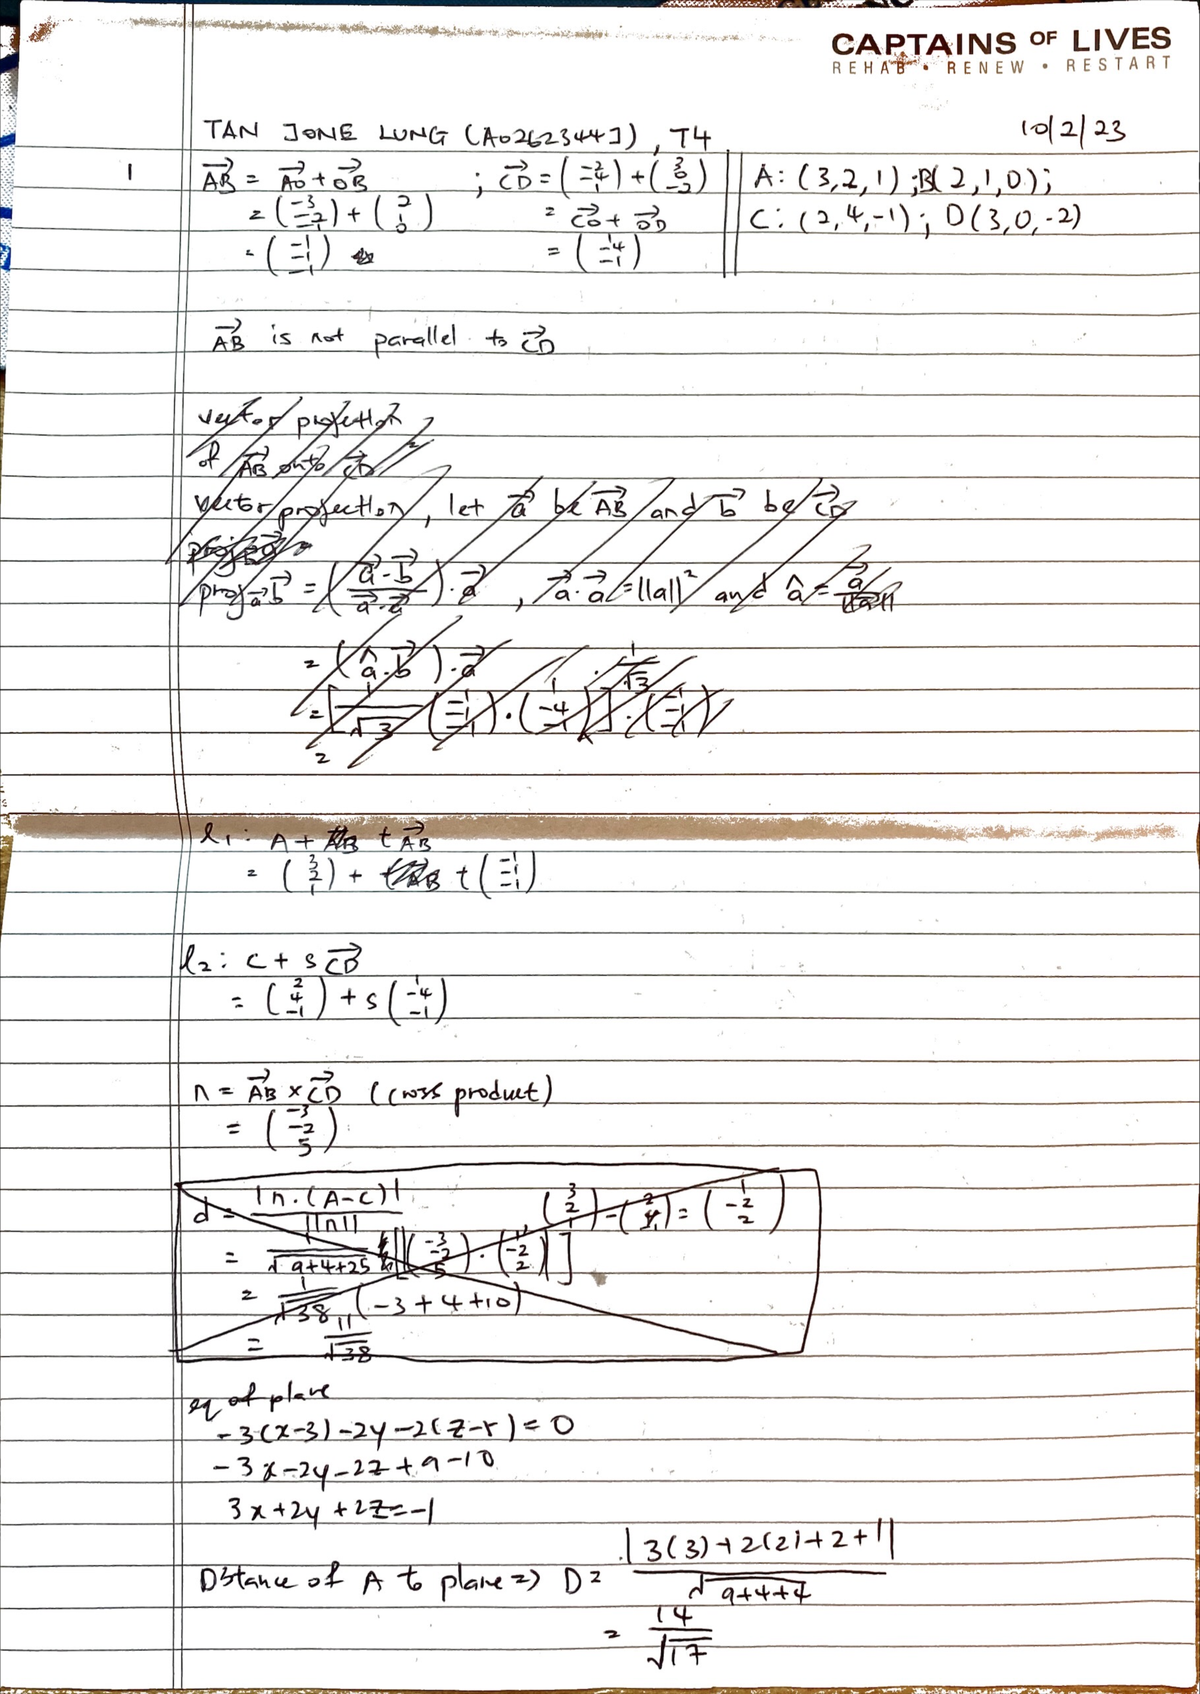 CAPTAINS OF LIVES
REHAB • RENEW • RESTART
TAN JONE LUNG (A0262344J), T4 10/2/23
1 AB = AO + OB ; CD = (-2 -4 1) + (3 0 -2) A: (3,2,1); B(2,1,0);
= (-3 -2 -1) + (2 1 0) = CO + OD C: (2,4,-1); D(3,0,-2)
= (-1 -1 -1) = (1 -4 -1)
AB is not parallel to CD
vector projection
of AB onto CD =
vector projection, let a be AB and b be CD
proj a b = (a·b / a·a)·a , a·a = ||a||² and â = a/||a||
= (â·b)·a
= [1/√3 (-1 -1 -1)·(1 -4 -1)]·1/√3·(-1 -1 -1)
=
l1: A + t AB
= (3 2 1) + t(-1 -1 -1)
l2: C + s CD
= (2 4 -1) + s(1 -4 -1)
n = AB × CD (cross product)
= (-3 -2 5)
d = |n·(A-C)| / ||n|| (3 2 1) - (2 4 -1) = (1 -2 2)
= 1/√9+4+25 [(-3 -2 5)·(1 -2 2)]
= 1/√38 (-3+4+10)
= 11/√38
eq of plane
-3(x-3)-2y-2(z-5)=0
-3x-2y-2z+9-10
3x+2y+2z=-1
Distance of A to plane => D = |3(3)+2(2)+2+1| / √9+4+4
= 14/√17